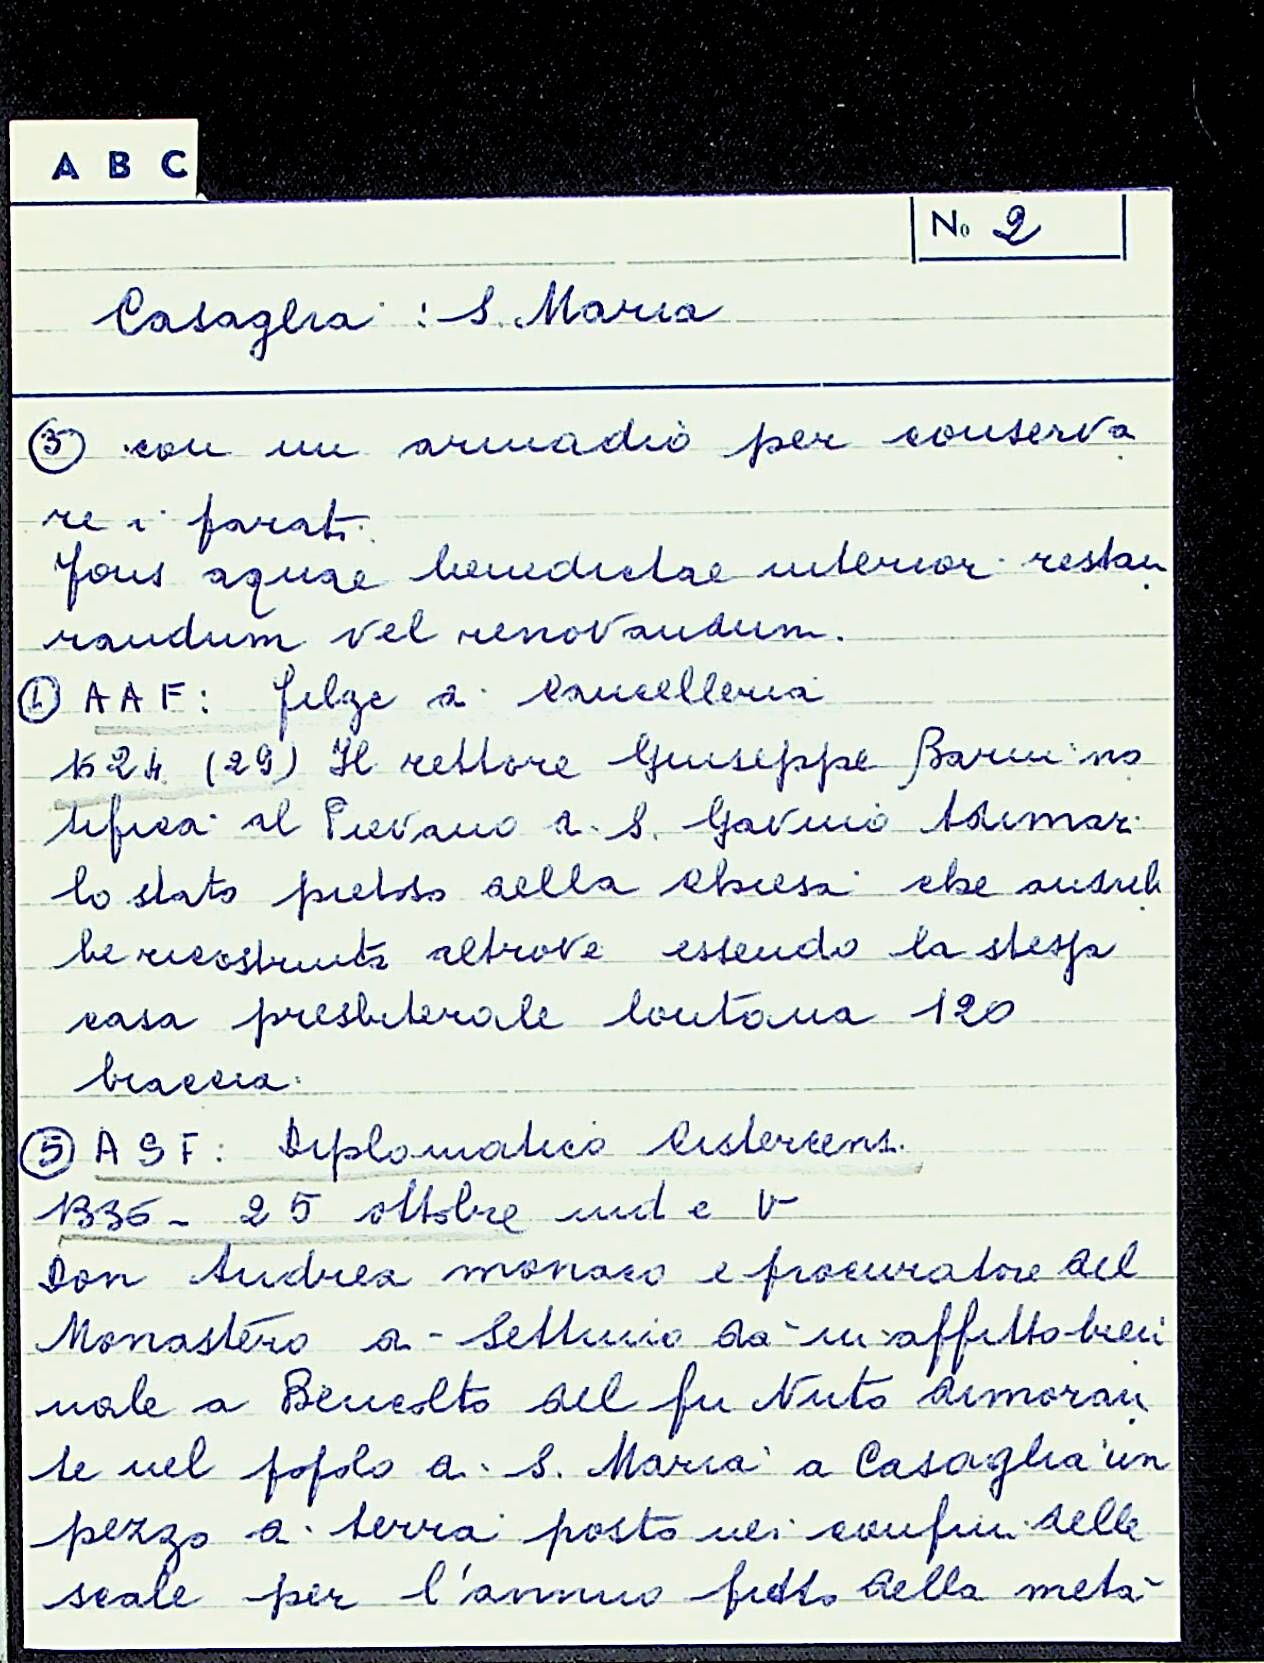 A B C
No 2
Casaglia : S. Maria
③ con un armadio per conserva
re i parati.
Fons aquae benedictae interior restau
randum vel renovandum.
④ AAF: filze di Cancelleria
(29) Il rettore Giuseppe Barni no
tifica al Pievano di S. Gavino Adimari
lo stato pietoso della chiesa che andreb
be ricostruita altrove essendo la stessa
casa presbiterale lontana 120
braccia.
⑤ ASF: Diplomatico Cistercens.
1336 - 25 ottobre ind e V
Don Andrea monaco e procuratore del
Monastero di Settimio dà in affitto
nale a del fu Nuto dimoran
te nel popolo di S. Maria a Casaglia un
pezzo di terra posto nei confini delle
scale per l'annuo fitto della metà